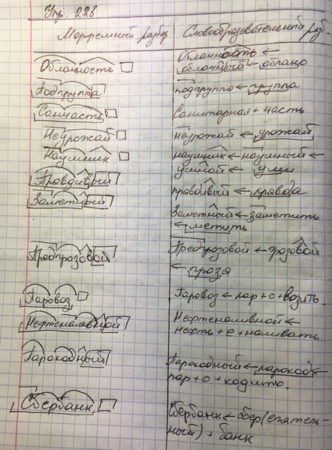 Упр. 228
Морфемный разбор Словообразовательный раз-
Облачность Облачность ←
облачный ← облако
Подгруппа подгруппа ← группа
Санчасть Санитарная + часть
Неурожай неурожай ← урожай
Наушник наушник ←
← уши
Правдивый правдивый ← правда
Заметный Заметный ← заметить
← метить
Предгрозовой Предгрозовой ← грозовой
← гроза
Паровоз Паровоз ← пар + о + возить
Нефтеналивной Нефтеналивной ←
нефть + е + наливать
Пароходный Пароходный ← пароход ←
пар + о + ходить
Сбербанк Сбербанк ← сбер(егатель-
ный) + банк